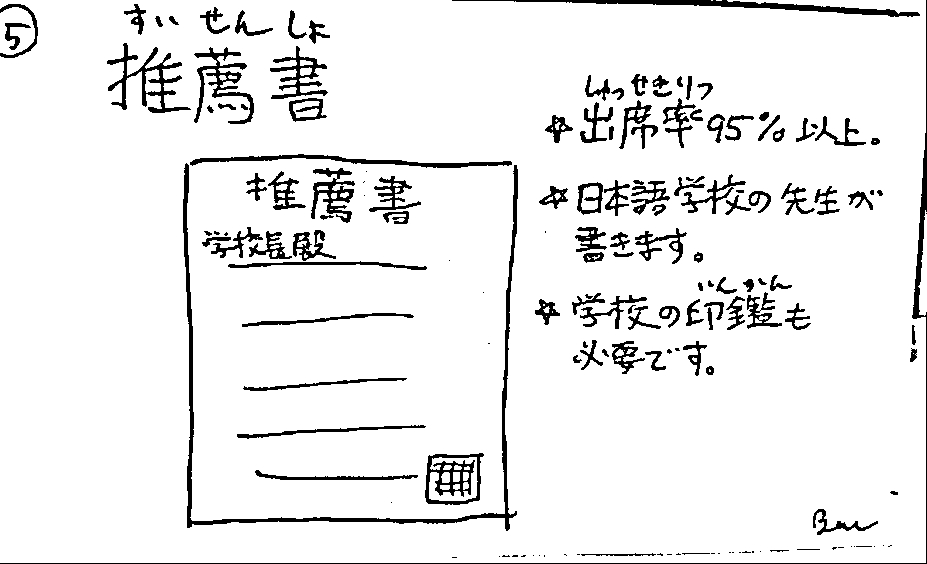 ⑤
すいせんしょ
推薦書
推薦書
学校長殿
しゅっせきりつ
☆出席率95%以上。
☆日本語学校の先生が
書きます。
いんかん
☆学校の印鑑も
必要です。